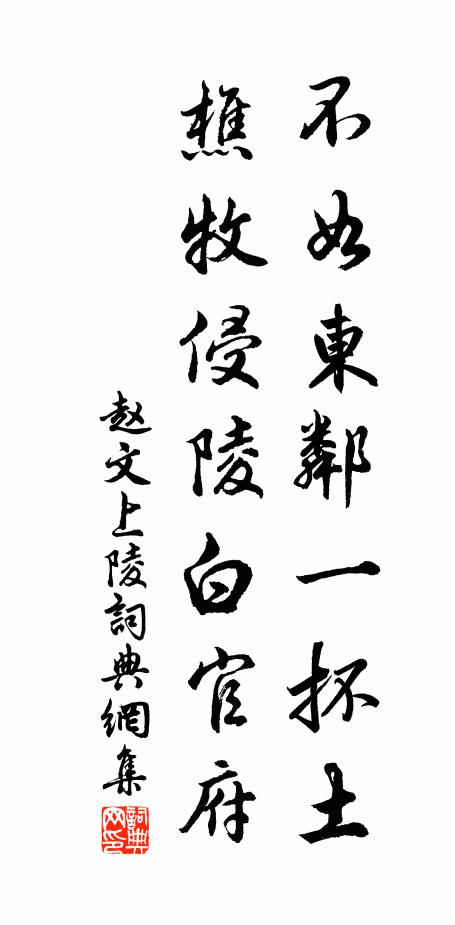 不如東鄰一抔土
樵牧侵陵白官府
赵文上陵詞典網集
詞典
网印